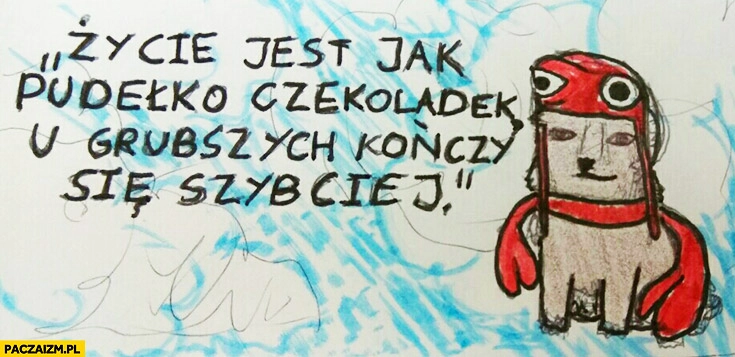 „ŻYCIE JEST JAK
PUDEŁKO CZEKOLADEK,
U GRUBSZYCH KOŃCZY
SIĘ SZYBCIEJ."
PACZAIZM.PL